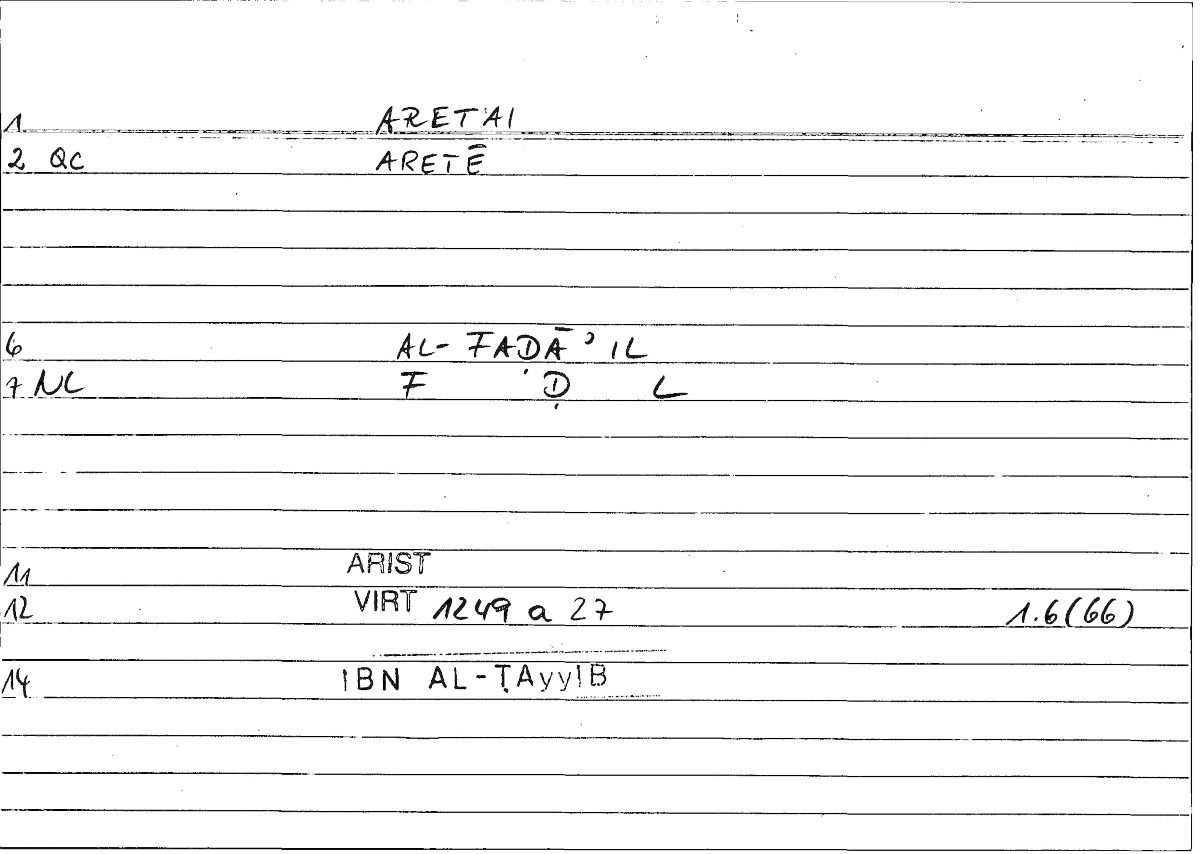 1 ARETAI
2 QC ARETĒ
6 AL-FAḌĀʾIL
7 NC F Ḍ L
11 ARIST
12 VIRT 1249 a 27 1.6(66)
14 IBN AL-ṬAyyIB